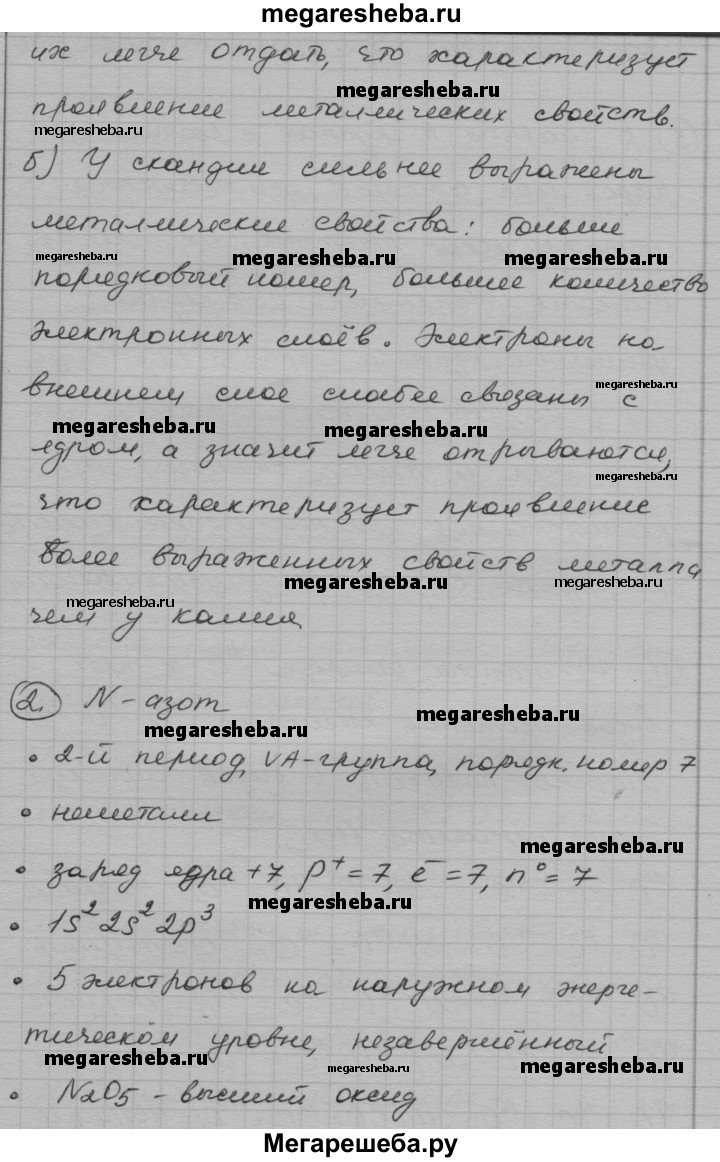 megaresheba.ru
их легче отдать, что характеризует
megaresheba.ru
проявление металлических свойств.
megaresheba.ru
б) У скандия сильнее выражены
металлические свойства: больше
megaresheba.ru megaresheba.ru megaresheba.ru
порядковый номер, большее количество
электронных слоёв. Электроны на
внешнем слое слабее связаны с
megaresheba.ru
megaresheba.ru megaresheba.ru
ядром, а значит легче отрываются,
megaresheba.ru
что характеризует проявление
более выраженных свойств металла
megaresheba.ru megaresheba.ru
megaresheba.ru
чем у калия
2. N - азот
megaresheba.ru megaresheba.ru
• 2-й период, VA-группа, порядк. номер 7
• неметалл
megaresheba.ru
• заряд ядра +7, p⁺ = 7, e⁻ = 7, n⁰ = 7
megaresheba.ru
• 1s² 2s² 2p³
• 5 электронов на наружном энерге-
тическом уровне, незавершённый
megaresheba.ru megaresheba.ru megaresheba.ru
• N2O5 - высший оксид
Мегарешеба.ру